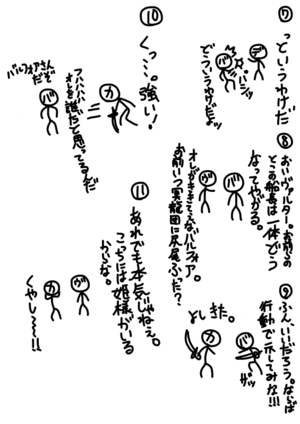 ⑦
っというわけだ
デ
バ
バシッ
どういうわけだよッ
⑧
おいヴァルター。お前らの
とこの船長は一体どう
なってやがる。
ヴ
バ
お前いつ実能団に尻尾ふった?
⑨
ふん、いいだろう。ならば
行動で示してみな!!!
カ
バ
ザッ
⑩
くっ…。強い!
カ
フハハハ、
オレを誰だと思ってるんだ
バルフォアさん
だぞ
バ
⑪
あれでも本気じゃねぇ。
こっちには姫様がいる
からな。
ヴ
カ
くやし〜〜!!